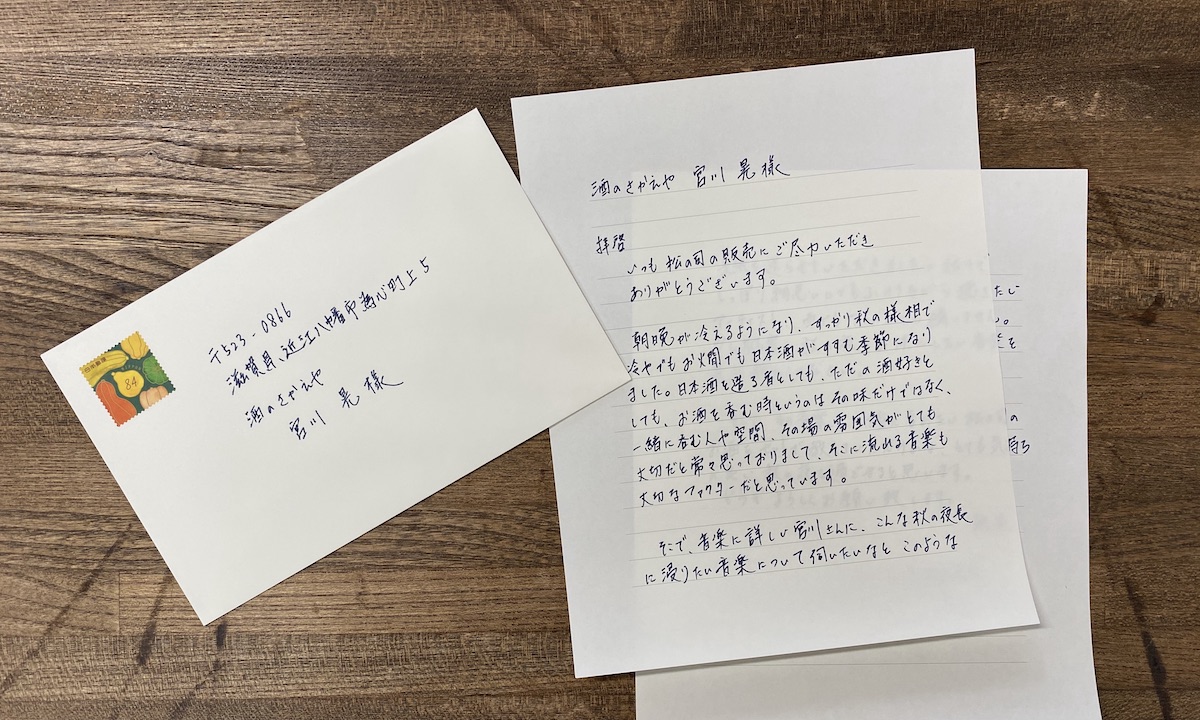 〒523-0866
滋賀県近江八幡市為心町上5
酒のさかえや
宮川 晃 様
84
酒のさかえや 宮川 晃 様
拝啓
いつも松の司の販売にご尽力いただき
ありがとうございます。
朝晩が冷えるようになり、すっかり秋の様相で
冷やでもお燗でも日本酒がすすむ季節になり
ました。日本酒を造る者としても、ただの酒好きと
しても、お酒を呑む時というのはその味だけではなく、
一緒に呑む人や空間、その場の雰囲気がとても
大切だと常々思っておりまして、そこに流れる音楽も
大切なファクターだと思っています。
そこで、音楽に詳しい宮川さんに、こんな秋の夜長
に浸りたい音楽について伺いたいなと このような
たい
の